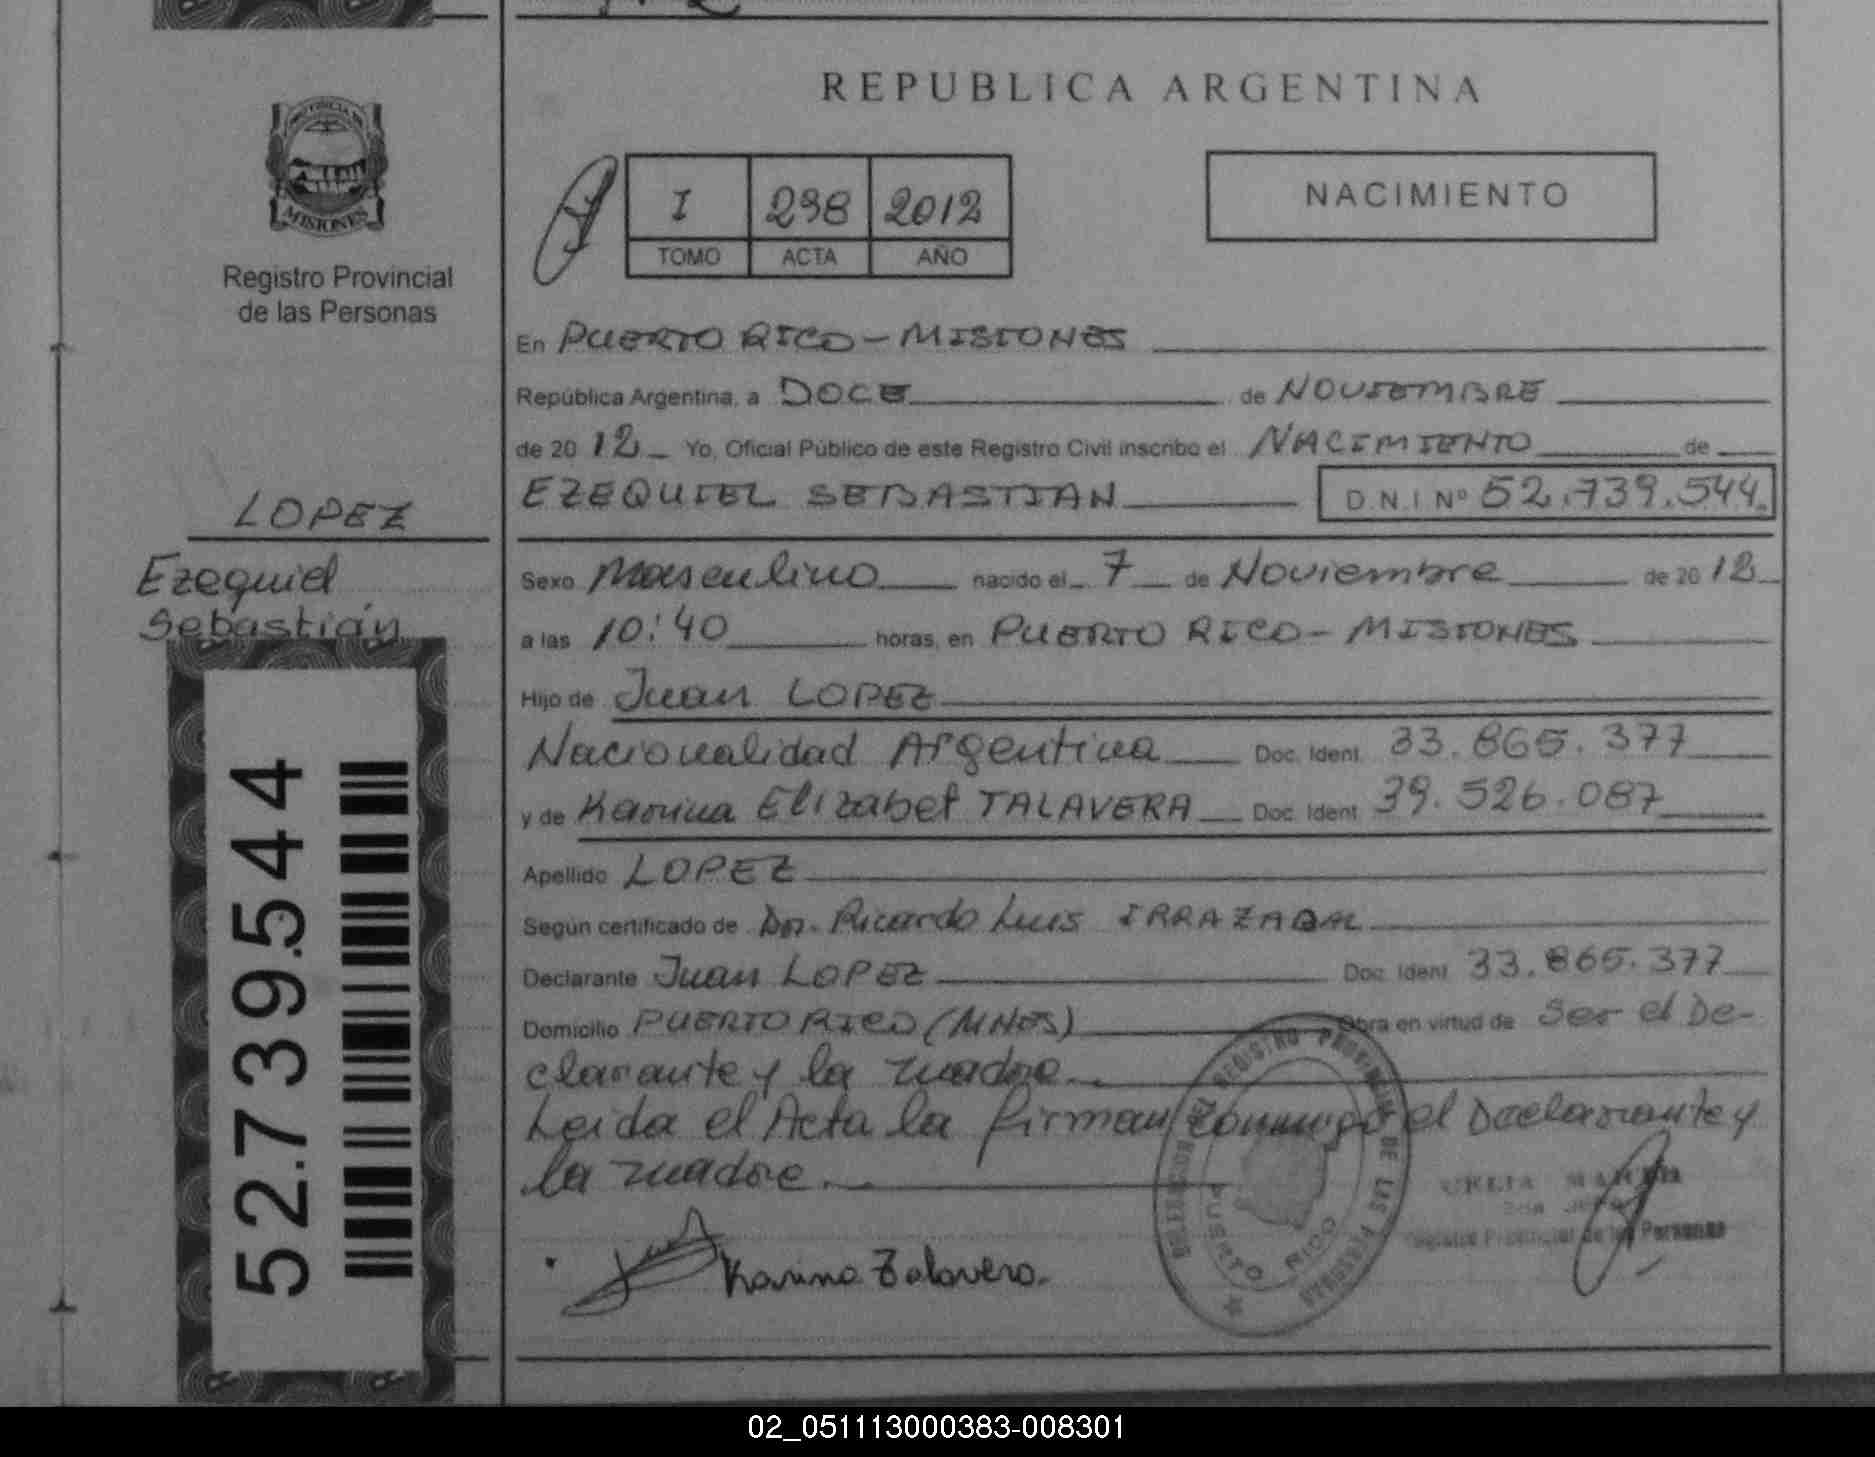 REPUBLICA ARGENTINA
PROVINCIA DE
MISIONES
Registro Provincial
de las Personas
I 298 2012
TOMO ACTA AÑO
NACIMIENTO
En PUERTO RICO - MISIONES
República Argentina, a DOCE de NOVIEMBRE
de 20 12 Yo, Oficial Público de este Registro Civil inscribo el NACIMIENTO de
EZEQUIEL SEBASTIAN D.N.I Nº 52.739.544
LOPEZ
Ezequiel
Sebastián
Sexo Masculino nacido el 7 de Noviembre de 20 12
a las 10:40 horas, en PUERTO RICO - MISIONES
Hijo de Juan LOPEZ
Nacionalidad Argentina Doc. Ident. 33.865.377
y de Karina Elizabet TALAVERA Doc. Ident. 39.526.087
Apellido LOPEZ
Según certificado de Dr. Ricardo Luis IRRAZABAL
Declarante Juan LOPEZ Doc. Ident. 33.865.377
Domicilio PUERTO RICO (MNES) Obra en virtud de Ser el De-
clarante y la madre.
Leida el Acta la firman conmigo el Declarante y
la madre.
52.739.544
Karina Talavera.
REGISTRO PROVINCIAL DE LAS PERSONAS
PUERTO RICO
Registro Provincial de las Personas
02_051113000383-008301